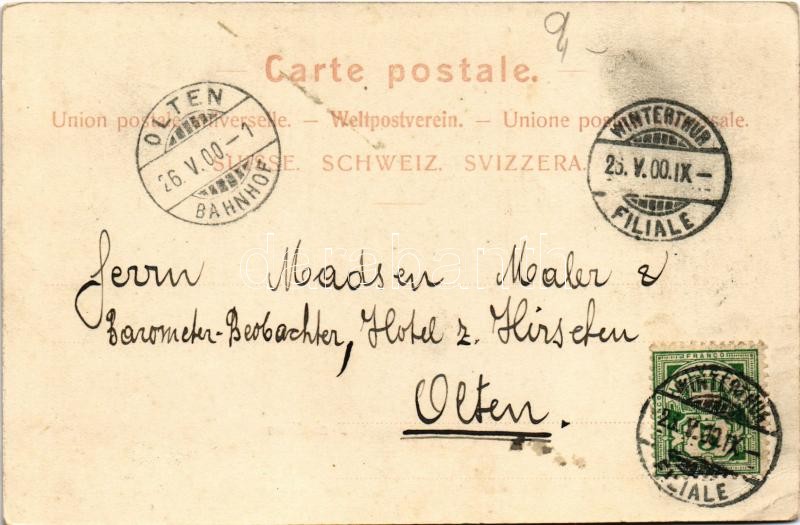 Carte postale.
Union postale universelle. — Weltpostverein. — Unione postale universale.
SUISSE. SCHWEIZ. SVIZZERA.
OLTEN
26.V.00-1
BAHNHOF
WINTERTHUR
25.V.00.IX-
FILIALE
Herrn Madsen Maler &
Barometer-Beobachter, Hotel z. Hirschen
Olten.
FRANCO
WINTERTHUR
V.00.IX
FILIALE
darabanth